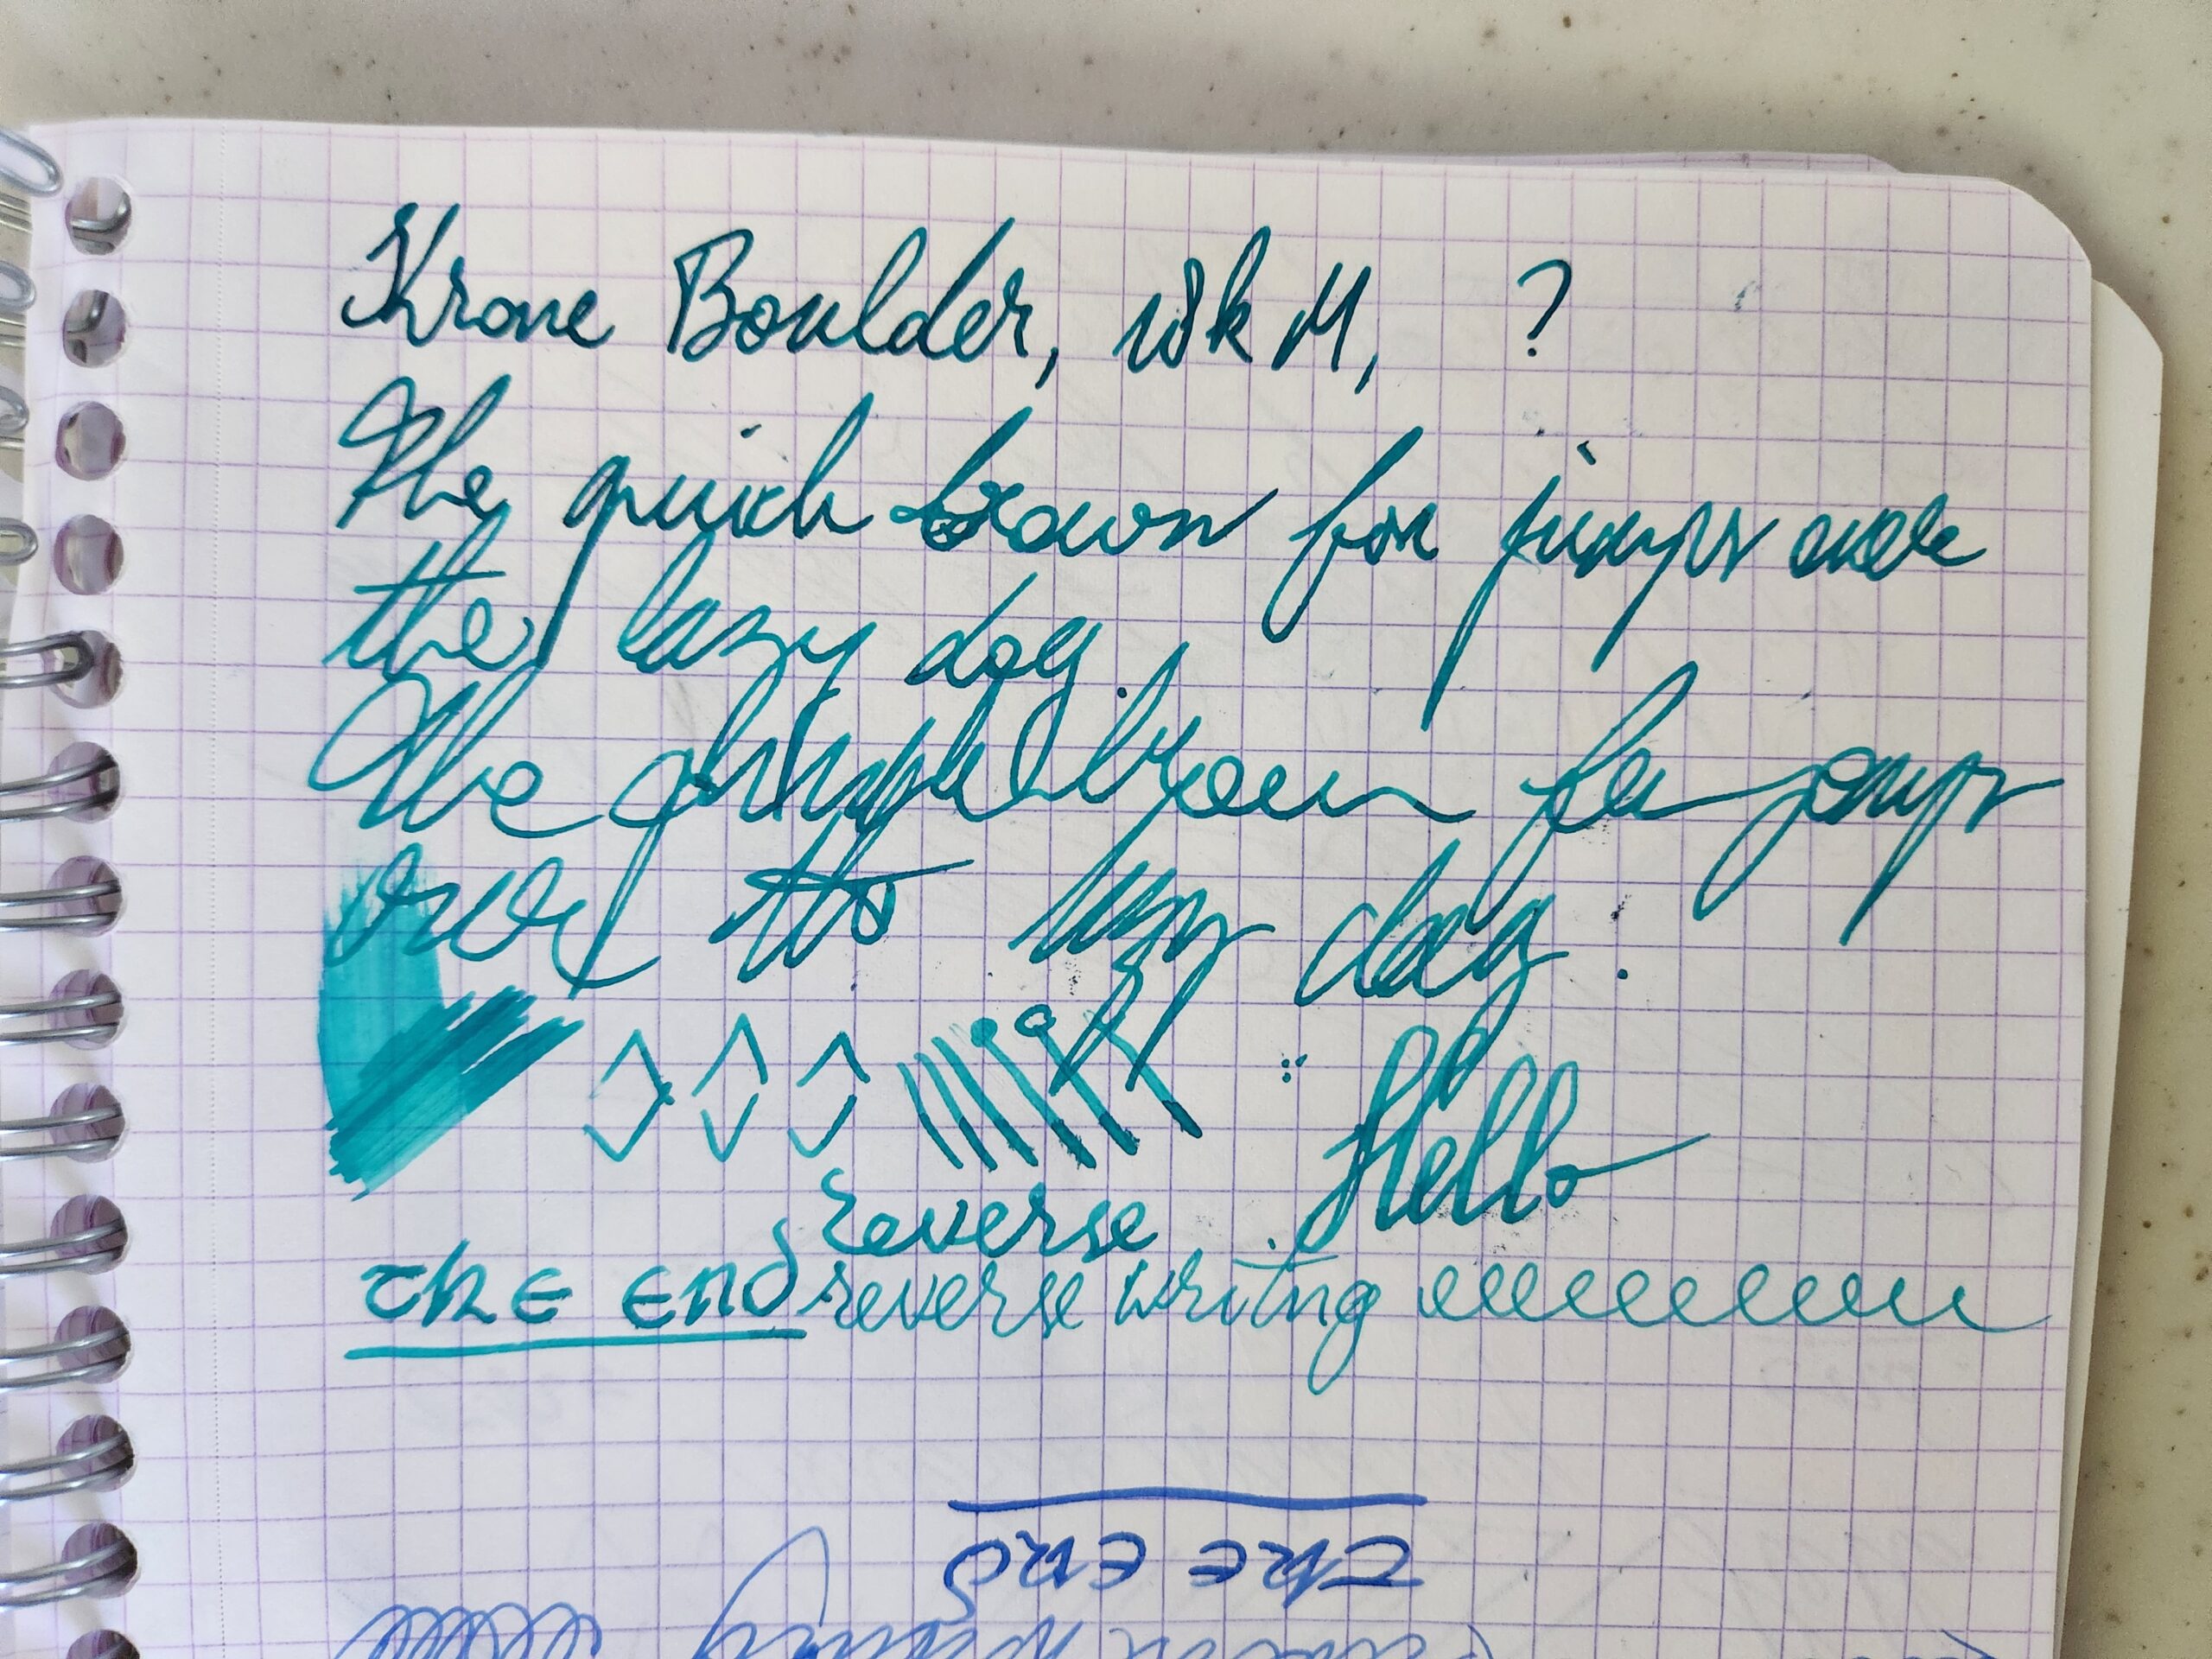 Krone Boulder, 18k M, ?
The quick brown fox jumps over
the lazy dog.
The quick brown fox jumps
over the lazy dog.
Hello
Reverse
THE END reverse writing eeeeeeeee
THE END